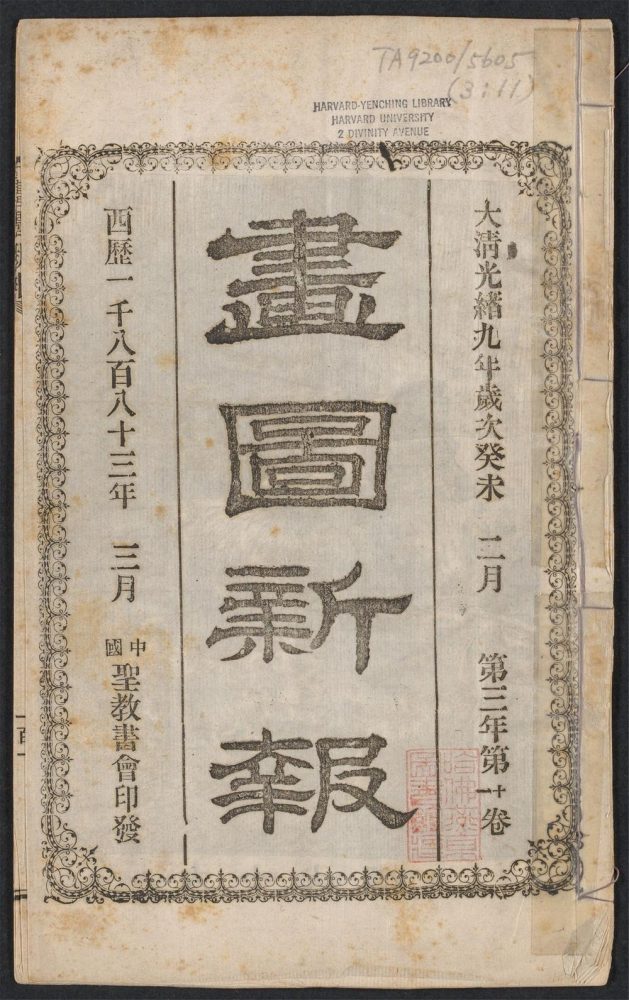 TA9200/5605
(3:11)
HARVARD-YENCHING LIBRARY
HARVARD UNIVERSITY
2 DIVINITY AVENUE
大淸光緒九年歲次癸未 二月 第三年第十一卷
畫圖新報
西歷一千八百八十三年 三月 中國聖教書會印發